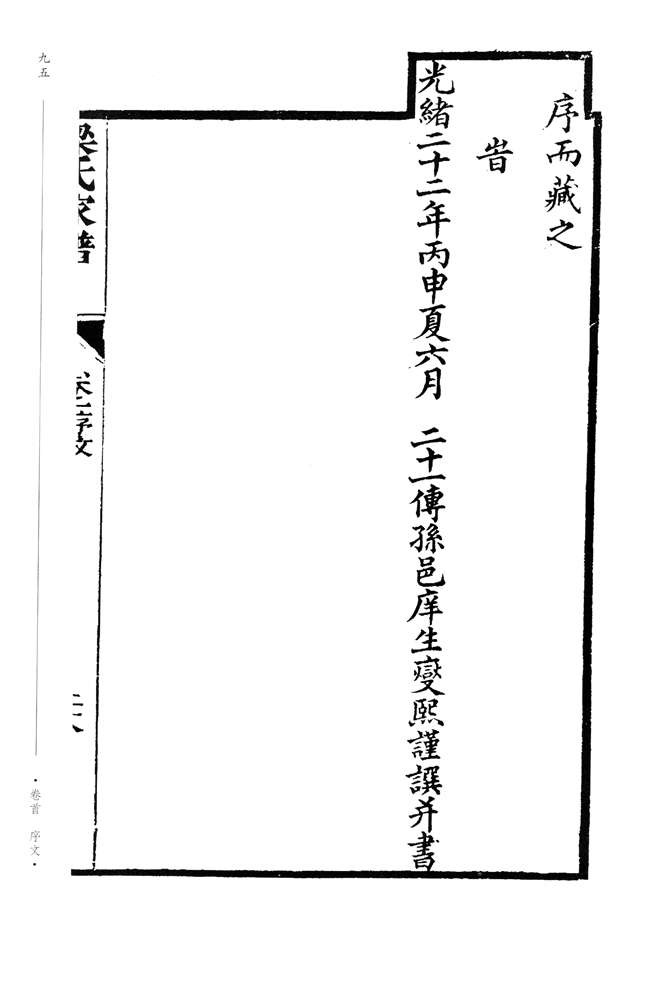 序而藏之
旹
光緒二十二年丙申夏六月　二十一傳孫邑庠生燮熙謹譔并書
梁氏家譜
序文
九五
·卷首　序文·